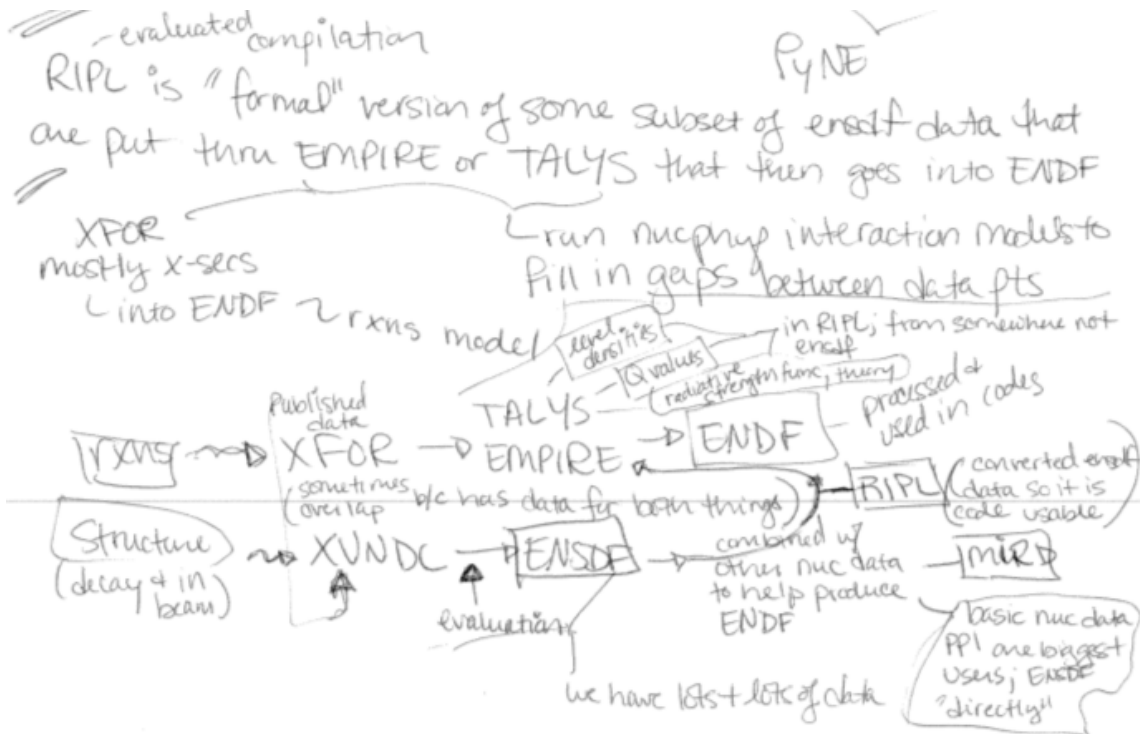 - evaluated compilation
PyNE
RIPL is "formal" version of some subset of ensdf data that
are put thru EMPIRE or TALYS that then goes into ENDF
XFOR
mostly x-secs
into ENDF
run nucphys interaction models to
fill in gaps between data pts
rxns model
level densities
Q values
radiative strength func, theory
in RIPL; from somewhere not
ensdf
Published
data
TALYS
processed &
used in codes
rxns
XFOR
EMPIRE
ENDF
(sometimes overlap b/c has data for both things)
RIPL
(converted ensdf
data so it is
code usable)
Structure
(decay & in
beam)
XUNDL
ENSDF
evaluation
combined w/
other nuc data
to help produce
ENDF
MIRD
basic nuc data
PPl are biggest
users; ENSDF
"directly"
we have lots + lots of data